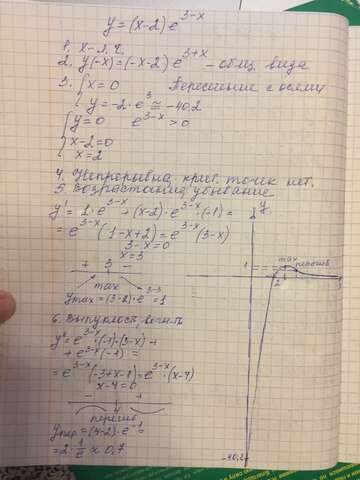 y = (x-2) e^{3-x}
1. x - л.ч.
2. y(-x) = (-x-2) e^{3+x} - общ. вида
3. { x = 0 Пересечение с осями
y = -2·e^3 ≅ -40.2
{ y = 0 e^{3-x} > 0
x-2=0
x = 2
4. Непрерывна, крит. точек нет.
5. Возрастание, убывание
y' = 1·e^{3-x} + (x-2)·e^{3-x}·(-1) =
= e^{3-x}(1-x+2) = e^{3-x}·(3-x)
3-x=0
x=3
+ 3 -
max
y_{max} = (3-2)·e^{3-3} = 1
6. Выпуклость, вогн-ть
y'' = e^{3-x}·(-1)·(3-x) +
+ e^{3-x}(-1) =
= e^{3-x}(-3+x-1) = e^{3-x}·(x-4)
x-4=0
- +
4
перегиб
y_{пер.} = (4-2)·e^{-1} =
= 2·\frac{1}{e} ≈ 0,7
y
max
перегиб
1
2
-40.2